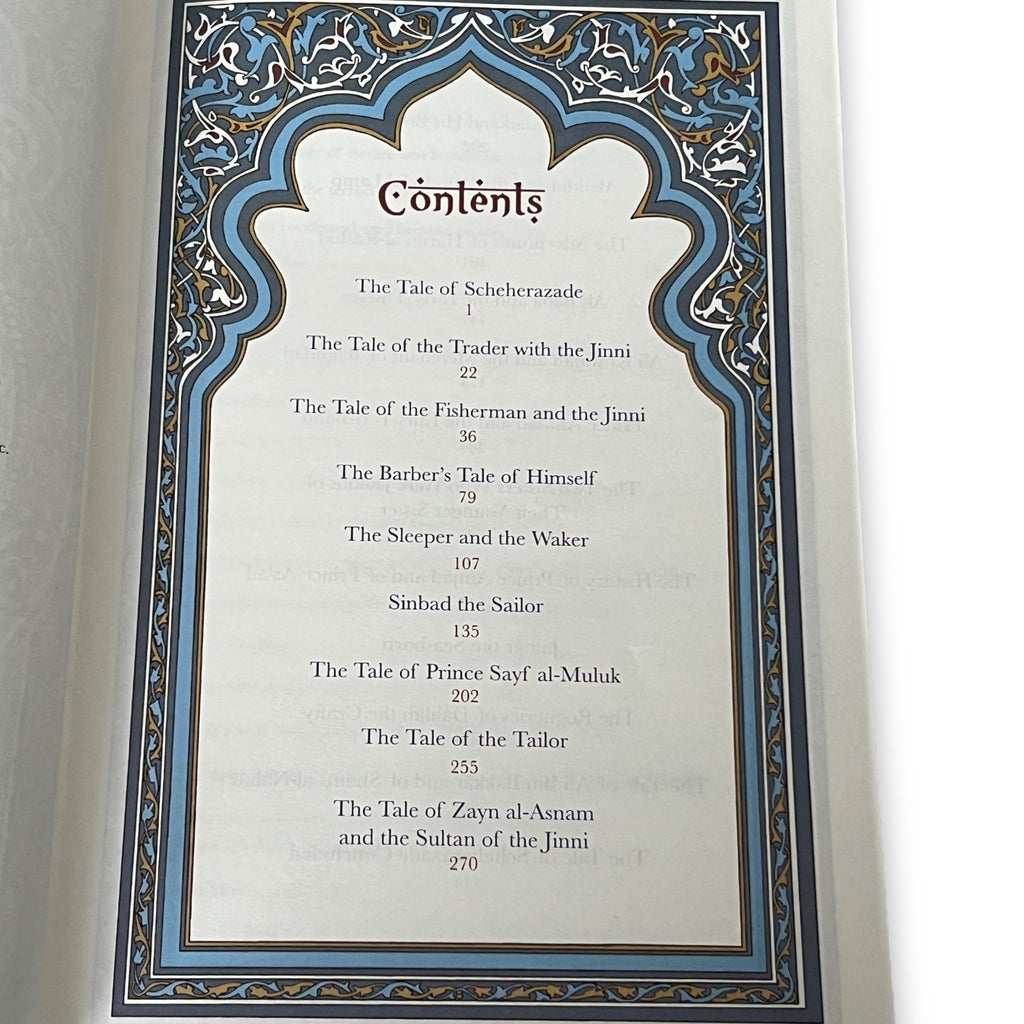 Contents
The Tale of Scheherazade
1
The Tale of the Trader with the Jinni
22
The Tale of the Fisherman and the Jinni
36
The Barber's Tale of Himself
79
The Sleeper and the Waker
107
Sinbad the Sailor
135
The Tale of Prince Sayf al-Muluk
202
The Tale of the Tailor
255
The Tale of Zayn al-Asnam
and the Sultan of the Jinni
270